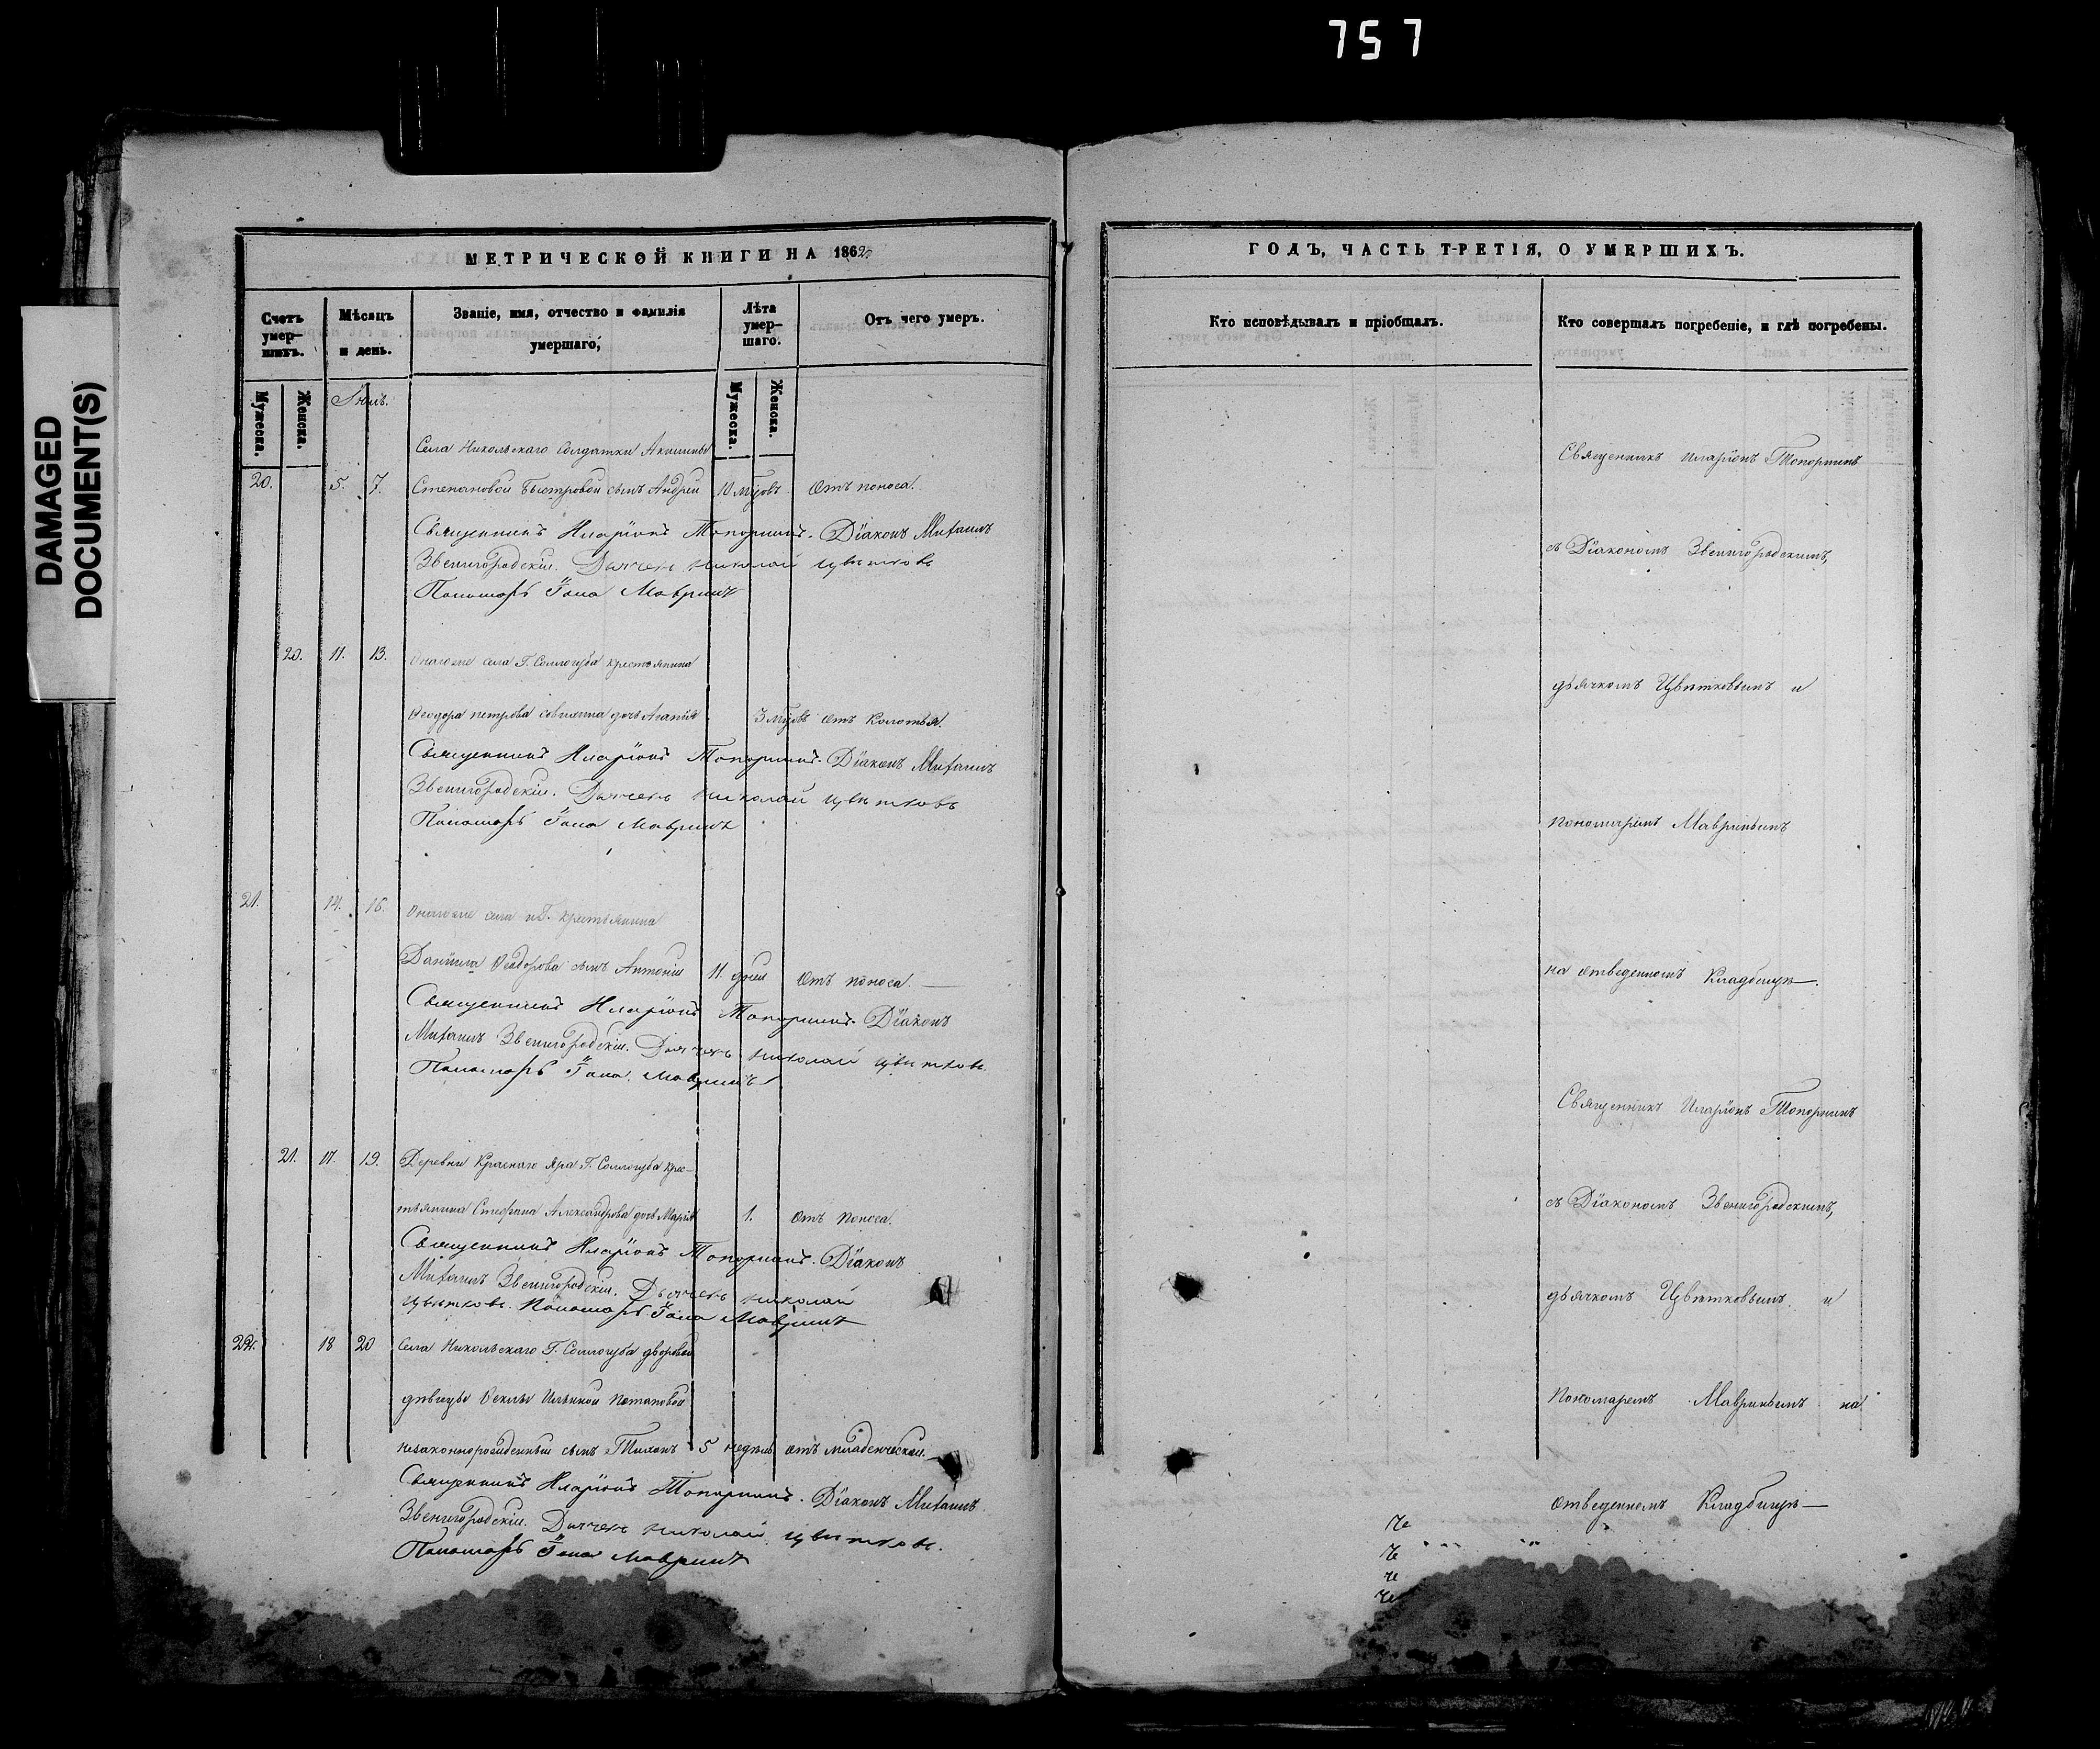 757
DAMAGED
DOCUMENT(S)
МЕТРИЧЕСКОЙ КНИГИ НА 1862
Счетъ умер-шихъ.
Мѣсяцъ и день.
Званіе, имя, отчество и фамилія умершаго,
Лѣта умер-шаго.
Отъ чего умеръ.
Мужеска.
Женска.
Мужеска.
Женска.
Іюль.
Села Никольскаго солдатки Акилины
20. 5. 7. Степановой Быстровой сынъ Андрей 10 мѣсцовъ Отъ поноса.
Священникъ Иларіонъ Топорнинъ. Діаконъ Михаилъ
Звенигородскій. Дьячекъ Николай Цвѣтковъ
Пономарь Іона Мавринъ
20. 11. 13. Онагоже села Г. Соллогуба крестьянина
Ѳеодора Петрова дочь 3 мѣсцовъ отъ колотья.
Священникъ Иларіонъ Топорнинъ. Діаконъ Михаилъ
Звенигородскій. Дьячекъ Николай Цвѣтковъ
Пономарь Іона Мавринъ
21. 14. 16. Онагоже села и Г. крестьянина
Даніила Ѳеодорова сынъ Антоній 11. дней отъ поноса. —
Священникъ Иларіонъ Топорнинъ. Діаконъ
Михаилъ Звенигородскій. Дьячекъ Николай Цвѣтковъ.
Пономарь Іона Мавринъ
21. 17. 19. Деревни Краснаго Яра Г. Соллогуба крес-
тьянина Стефана Александрова дочь Марія 1. отъ поноса.
Священникъ Иларіонъ Топорнинъ. Діаконъ
Михаилъ Звенигородскій. Дьячекъ Николай
Цвѣтковъ. Пономарь Іона Мавринъ
22. 18 20 Села Никольскаго Г. Соллогуба дворовой
дѣвицы Ѳеклы Ильиной Потаповой
незаконнорожденный сынъ Тихонъ 5 недѣль отъ младенческой.
Священникъ Иларіонъ Топорнинъ. Діаконъ Михаилъ
Звенигородскій. Дьячекъ Николай Цвѣтковъ.
Пономарь Іона Мавринъ
ГОДЪ, ЧАСТЬ ТРЕТІЯ, О УМЕРШИХЪ.
Кто исповѣдывалъ и пріобщалъ.
Кто совершалъ погребеніе, и гдѣ погребены.
Священникъ Иларіонъ Топорнинъ
съ Діакономъ Звенигородскимъ,
дьячкомъ Цвѣтковымъ и
пономаремъ Мавринымъ
на отведенномъ Кладбищѣ—.
Священникъ Иларіонъ Топорнинъ
съ Діакономъ Звенигородскимъ,
дьячкомъ Цвѣтковымъ и
пономаремъ Мавринымъ на
отведенномъ Кладбищѣ—